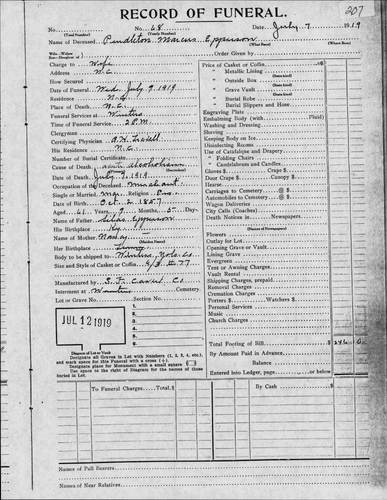 207
RECORD OF FUNERAL.
No. 68 Date, July 7 1919
(Total Number) (Yearly Number)
Name of Deceased, Pendleton Marcus Epperson
(What Race) (Where Born)
Order Given By
Charge to Wife
Address N.C.
How Secured
Date of Funeral Wed July 9 1919
Residence N.C.
Place of Death N.C.
Funeral Services at Winters
Time of Funeral Service 2 P.M.
Clergyman
Certifying Physician
His Residence N.C.
Number of Burial Certificate
Cause of Death acute alcoholism
(Secondary)
Date of Death July 7 1919
Occupation of the Deceased Merchant
Single or Married Mar. Religion
Date of Birth Oct. 2 1857
Aged 61 Years 9 Months 5 Days
Name of Father Silas Epperson
His Birthplace Ky.
Name of Mother Nancy
(Maiden Name)
Her Birthplace
Body to be shipped to Winters, Yolo Co.
Size and Style of Casket or Coffin 6/3 #77
Manufactured by S.F. Casket Co
Interment at Winters Cemetery.
Lot or Grave No. Section No.
JUL 12 1919
1.
2.
3.
4.
5.
6.
Diagram of Lot or Vault
Designate all Graves in Lot with Numbers (1, 2, 3, 4, etc.), and mark space for this Funeral with a cross (+).
Designate place for Monument with a small square
Use space to the right of Diagram for the names of those buried in Lot.
Price of Casket or Coffin
(State kind)
" Metallic Lining
(State kind)
" Outside Box
(State kind)
" Grave Vault
(State kind)
" Burial Robe
(State kind)
" Burial Slippers and Hose
Engraving Plate
Embalming Body (with Fluid)
Washing and Dressing
Shaving
Keeping Body on Ice
Disinfecting Rooms
Use of Catafalque and Drapery
" Folding Chairs
" Candelabrum and Candles
Gloves $ Crape $
Door Crape $ Canopy $
Hearse
Carriages to Cemetery @ $
Automobiles to Cemetery @ $
Wagon Deliveries
City Calls (Coaches)
Death Notices in Newspapers
Flowers
Outlay for Lot
Opening Grave or Vault
Lining Grave
Evergreen
Tent or Awning Charges
Vault Rental
Shipping Charges, prepaid
Removal Charges
Cremation Charges
Porters $ Watchers $
Personal Services
Music
Church Charges
Total Footing of Bill
By Amount Paid in Advance
Balance
Entered into Ledger, page or below.
To Funeral Charges Total, $ By Cash $
Names of Pall Bearers.
Names of Near Relatives.